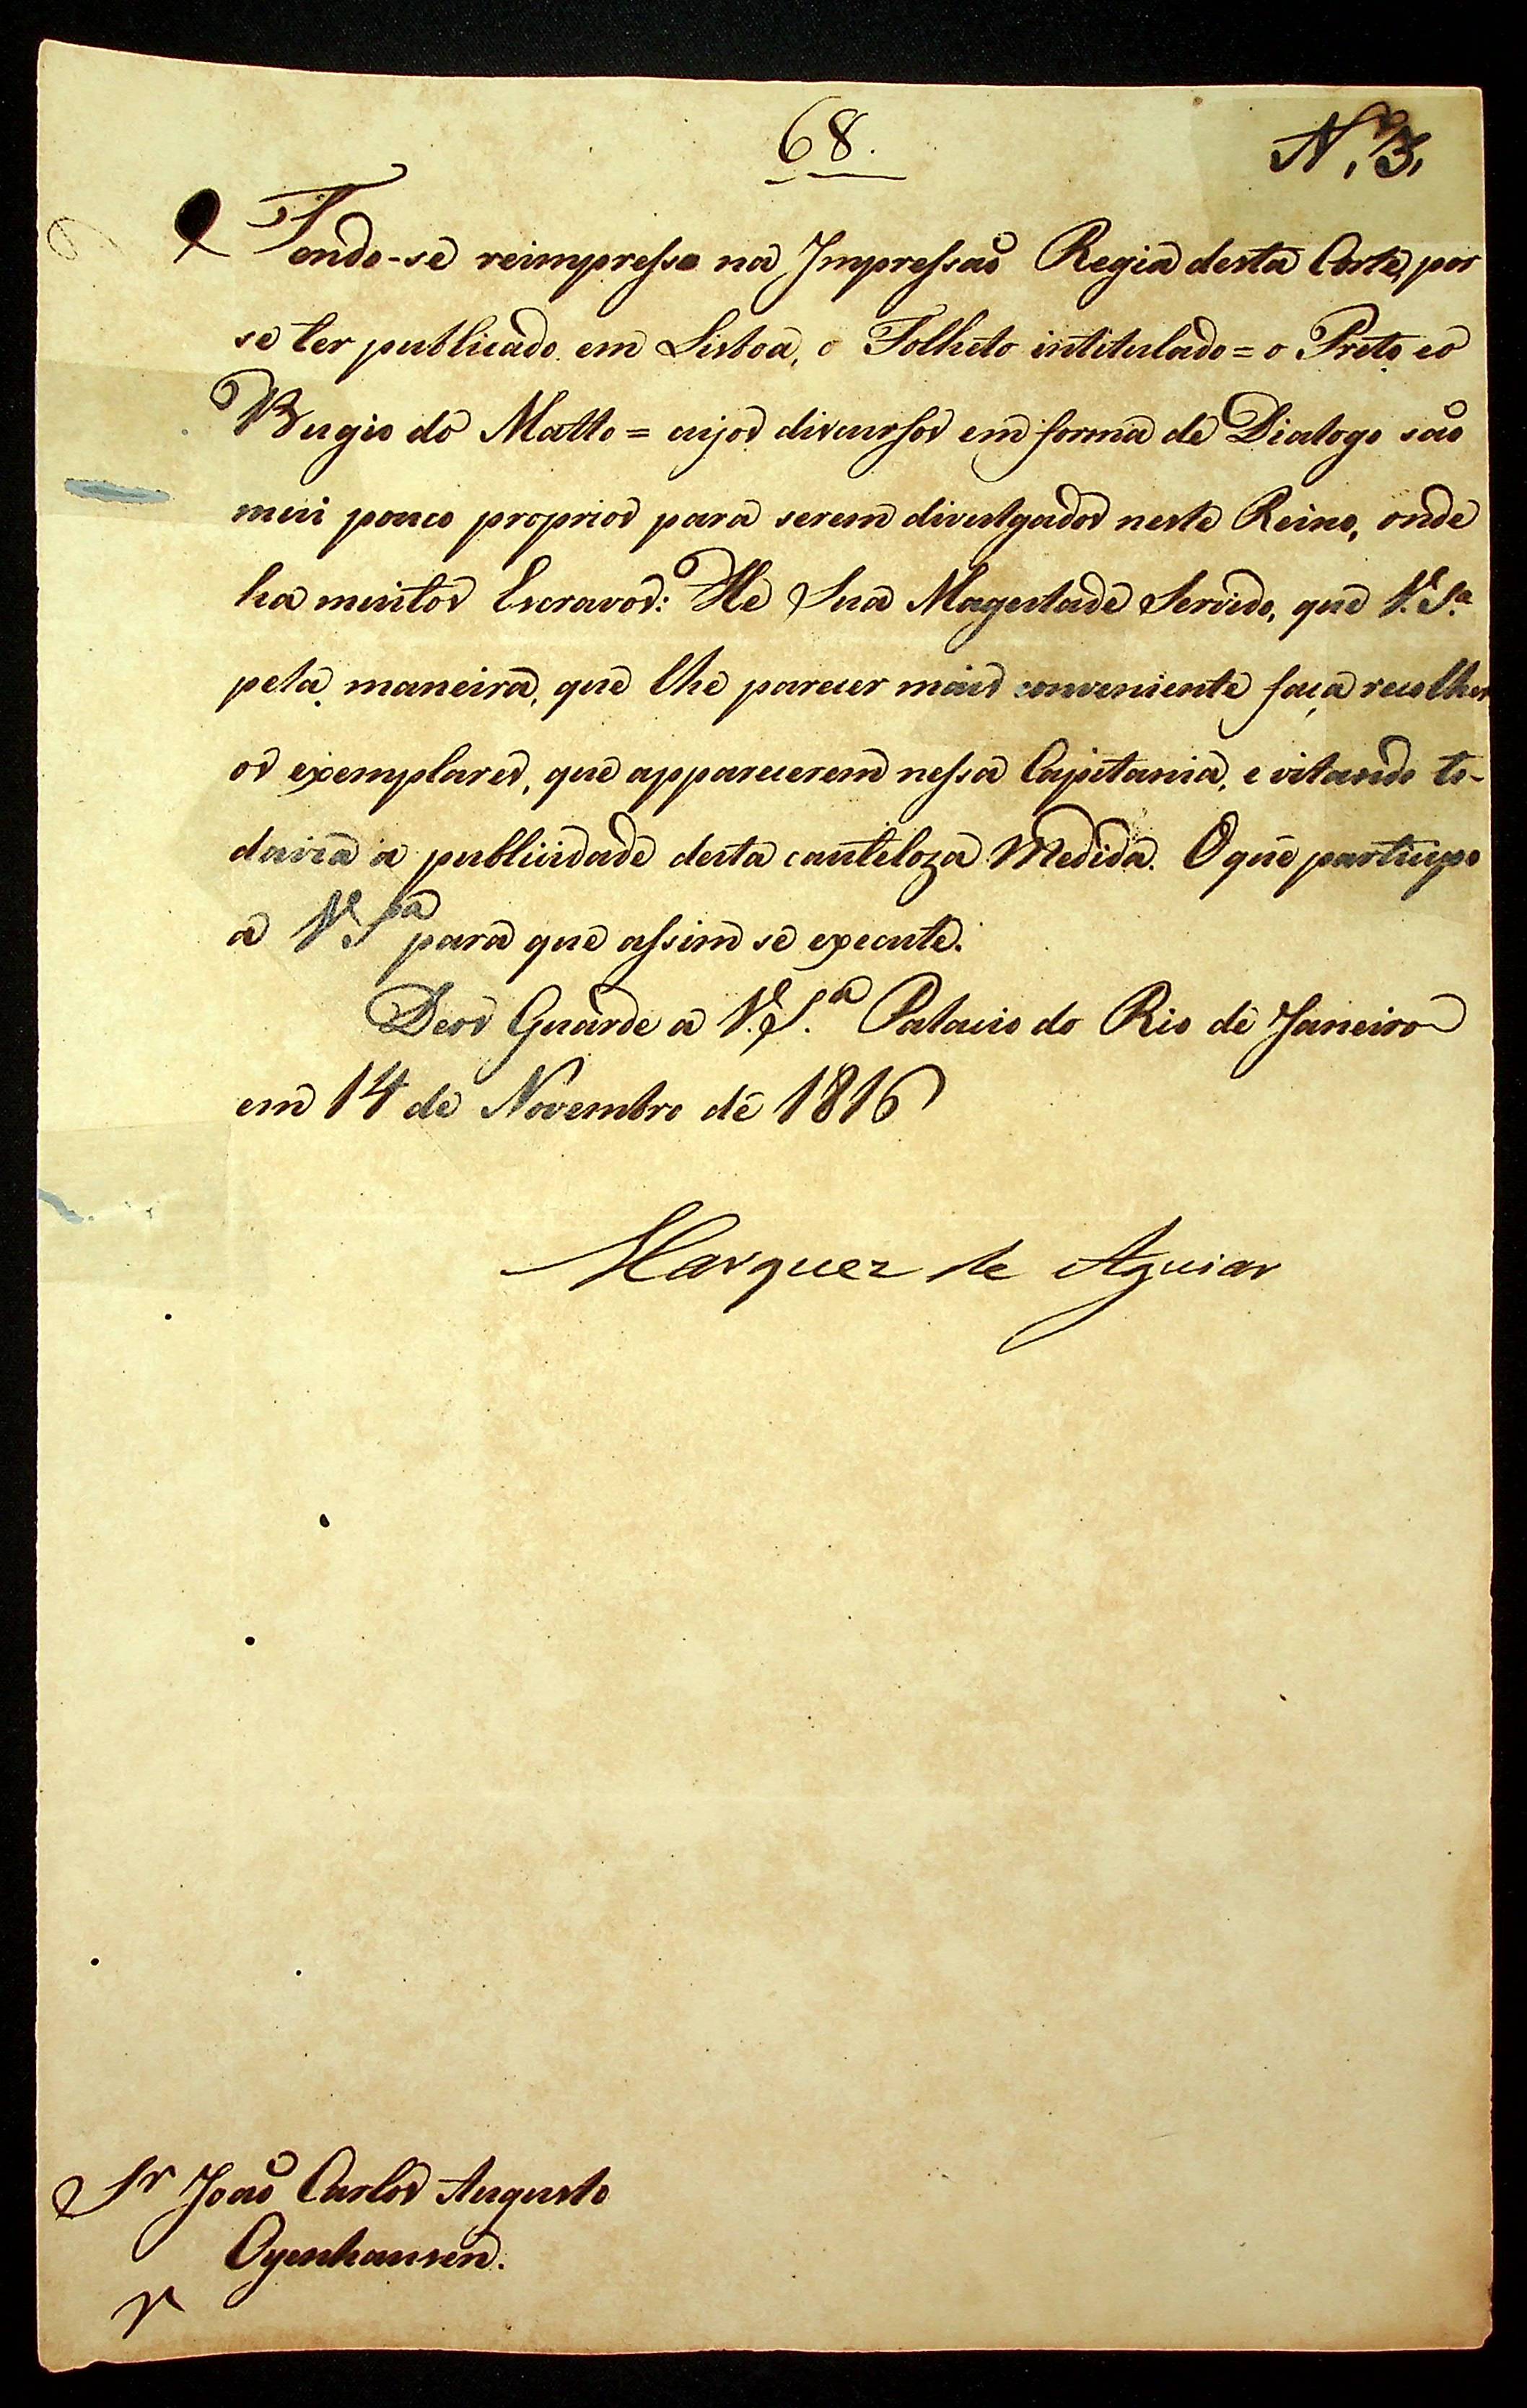 68.
N.º 3.
Tendo-se reimpresso na Impressaõ Regia desta Corte, por
se ter publicado em Lisboa, o Folheto intitulado = o Preto, eo
Bugio do Matto = cujos discursos em forma de Dialogo saõ
mui pouco proprios para serem divulgados neste Reino, onde
ha muitos Escravos: He Sua Magestade Servido, que V. S.ª
pela maneira, que lhe parecer mais conveniente faça recolher
os exemplares, que apparecerem nessa Capitania, evitando to-
davia a publicidade desta cauteloza Medida. O que participo
a V. S.ª para que assim se execute.
Deos Guarde a V. S.ª Palacio do Rio de Janeiro
em 14 de Novembro de 1816
Marquez de Aguiar
Sr João Carlos Augusto
Oyenhausen.